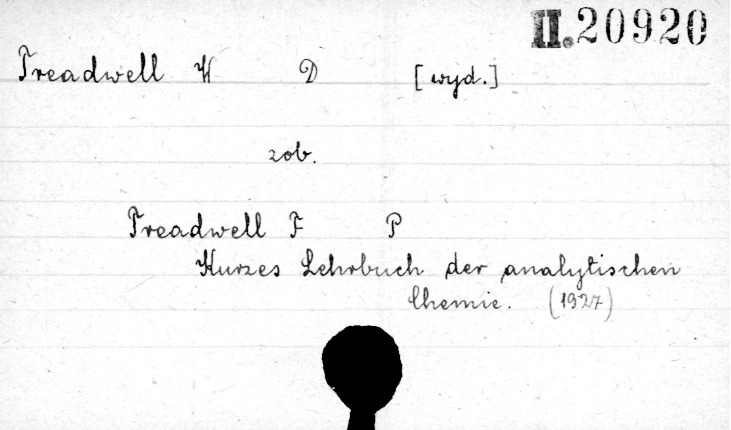 II.20920
Treadwell W D [wyd.]
zob.
Treadwell F P
Kurzes Lehrbuch der analytischen
Chemie. (1927)